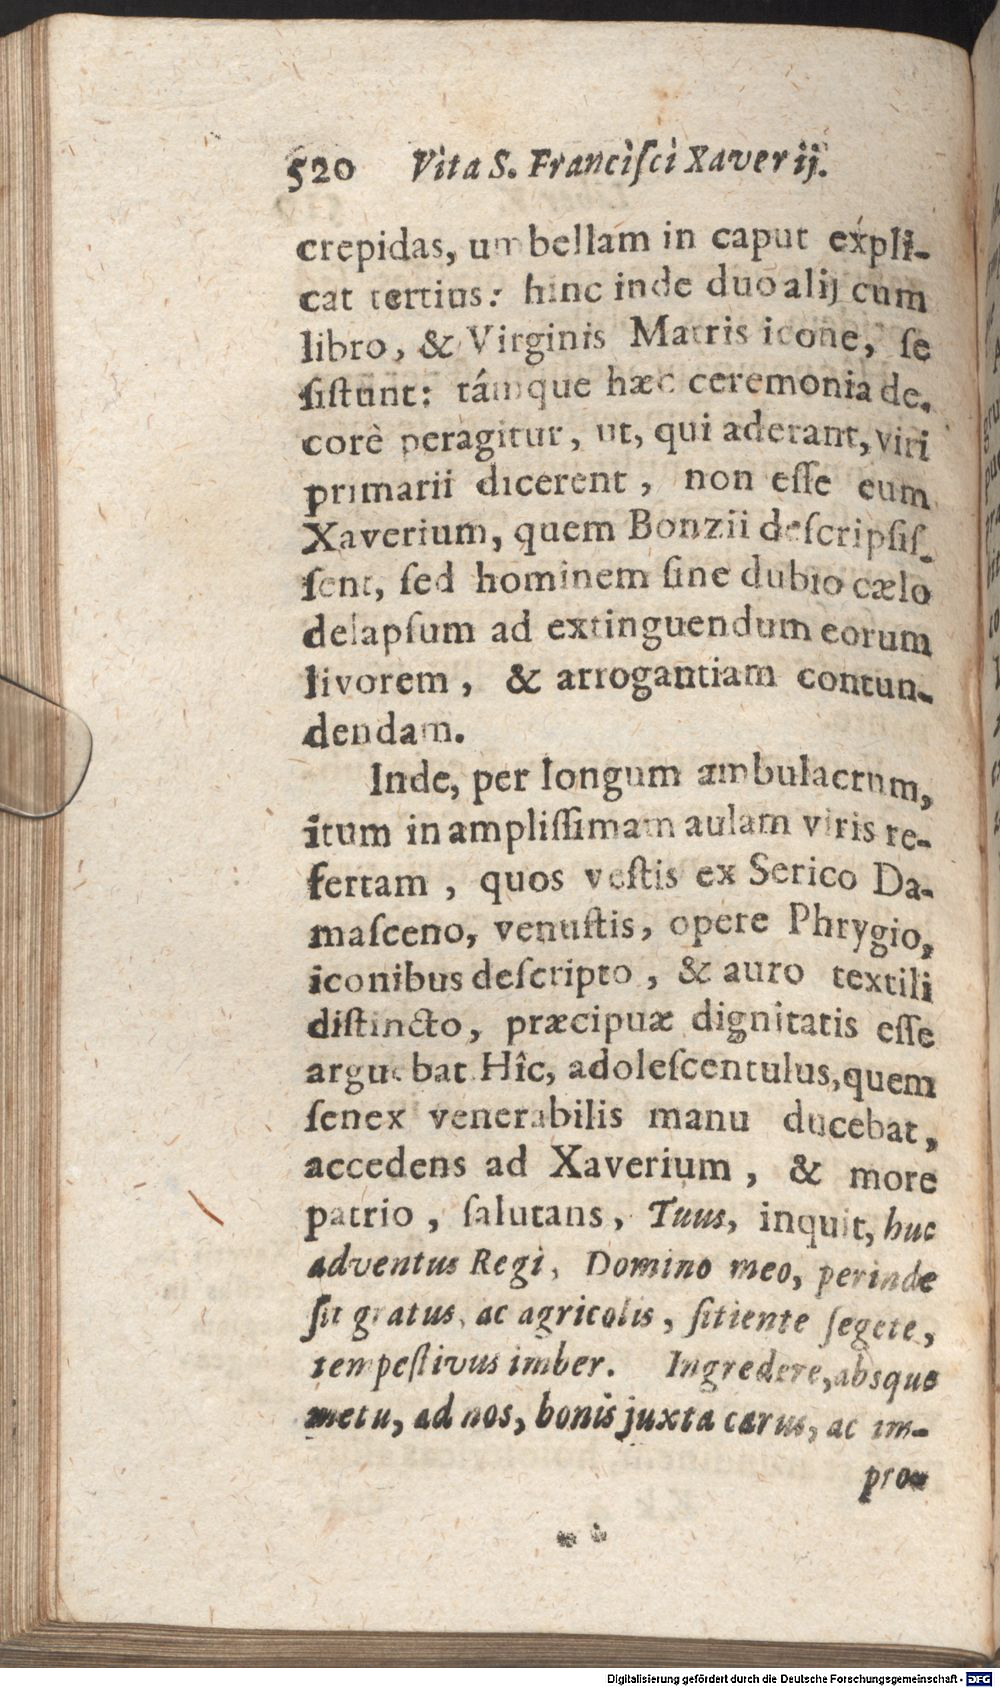 520 Vita S. Franciſci Xaverij.
crepidas, umbellam in caput expli-
cat tertius: hinc inde duo alij cum
libro, & Virginis Matris icone, ſe
ſiſtunt: támque hæc ceremonia de-
corè peragitur, ut, qui aderant, viri
primarii dicerent, non eſſe eum
Xaverium, quem Bonzii deſcripſiſ-
ſent, ſed hominem ſine dubio cælo
delapſum ad extinguendum eorum
livorem, & arrogantiam contun-
dendam.
Inde, per longum ambulacrum,
itum in ampliſſimam aulam viris re-
fertam, quos veſtis ex Serico Da-
maſceno, venuſtis, opere Phrygio,
iconibus deſcripto, & auro textili
diſtincto, præcipuæ dignitatis eſſe
arguebat. Hîc, adoleſcentulus, quem
ſenex venerabilis manu ducebat,
accedens ad Xaverium, & more
patrio, ſalutans, Tuus, inquit, huc
adventus Regi, Domino meo, perinde
ſit gratus, ac agricolis, ſitiente ſegete,
tempeſtivus imber. Ingredere, absque
metu, ad nos, bonis juxta carus, ac im-
pro-
Digitalisierung gefördert durch die Deutsche Forschungsgemeinschaft - DFG